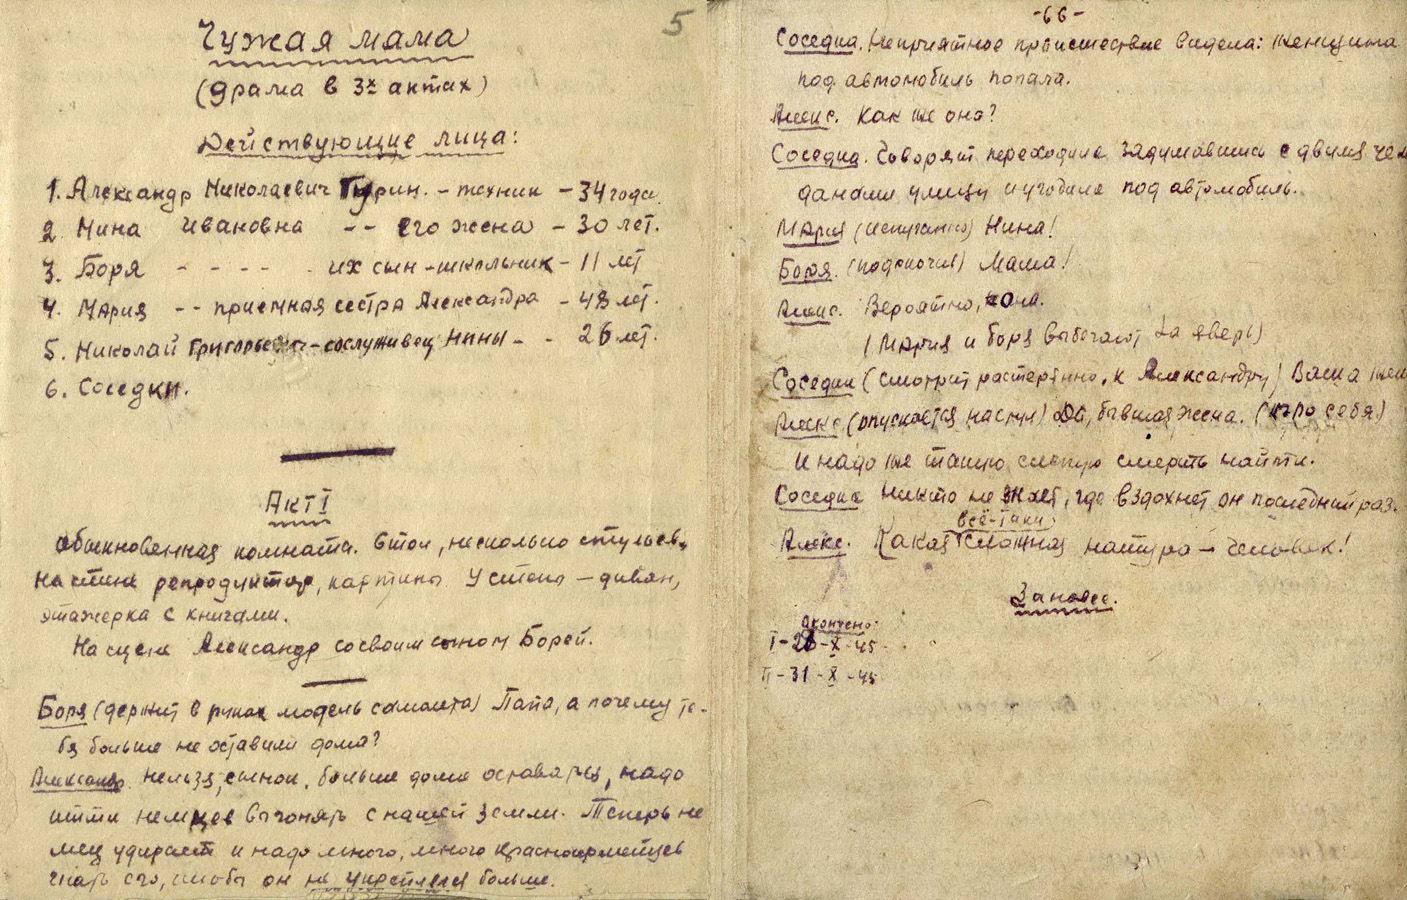 5
Чужая мама
(драма в 3х актах)
Действующие лица:
1. Александр Николаевич Гурин. – техник – 34 года.
2. Нина Ивановна -- его жена – 30 лет.
3. Боря - - - - . их сын – школьник – 11 лет
4. Мария -- приемная сестра Александра – 48 лет.
5. Николай Григорьевич – сослуживец Нины - - 26 лет.
6. Соседки.
Акт I
Обыкновенная комната. Стол, несколько стульев,
на стене репродуктор, картины. У стены – диван,
этажерка с книгами.
На сцене Александр со своим сыном Борей.
Боря (держит в руках модель самолета) Папа, а почему те-
бя больше не оставили дома?
Александр. Нельзя, сынок, больше дома оставаться, надо
итти немцев выгонять с нашей земли. Теперь не
мец удирает и надо много, много красноармейцев
гнать его, чтобы он не укреплялся больше.
-66-
Соседка. Неприятное происшествие видела: женщина
под автомобиль попала.
Алекс. Как же она?
Соседка. Говорят, переходила задумавшись с двумя чем
данами улицу и угодила под автомобиль.
Мария (испуганно) Нина!
Боря. (подскочив) Мама!
Алекс. Вероятно, она.
(Мария и Боря выбегают за дверь)
Соседка (смотрит растерянно, к Александру) Ваша жен
Алекс (опускается на стул) Да, бывшая жена. (про себя)
И надо же такую слепую смерть найти.
Соседка Никто не знает, где вздохнет он последний раз.
всё-таки
Алекс. Какая сложная натура – человек!
Занавес.
Окончено:
I – 28 – X – 45
II – 31 – X – 45